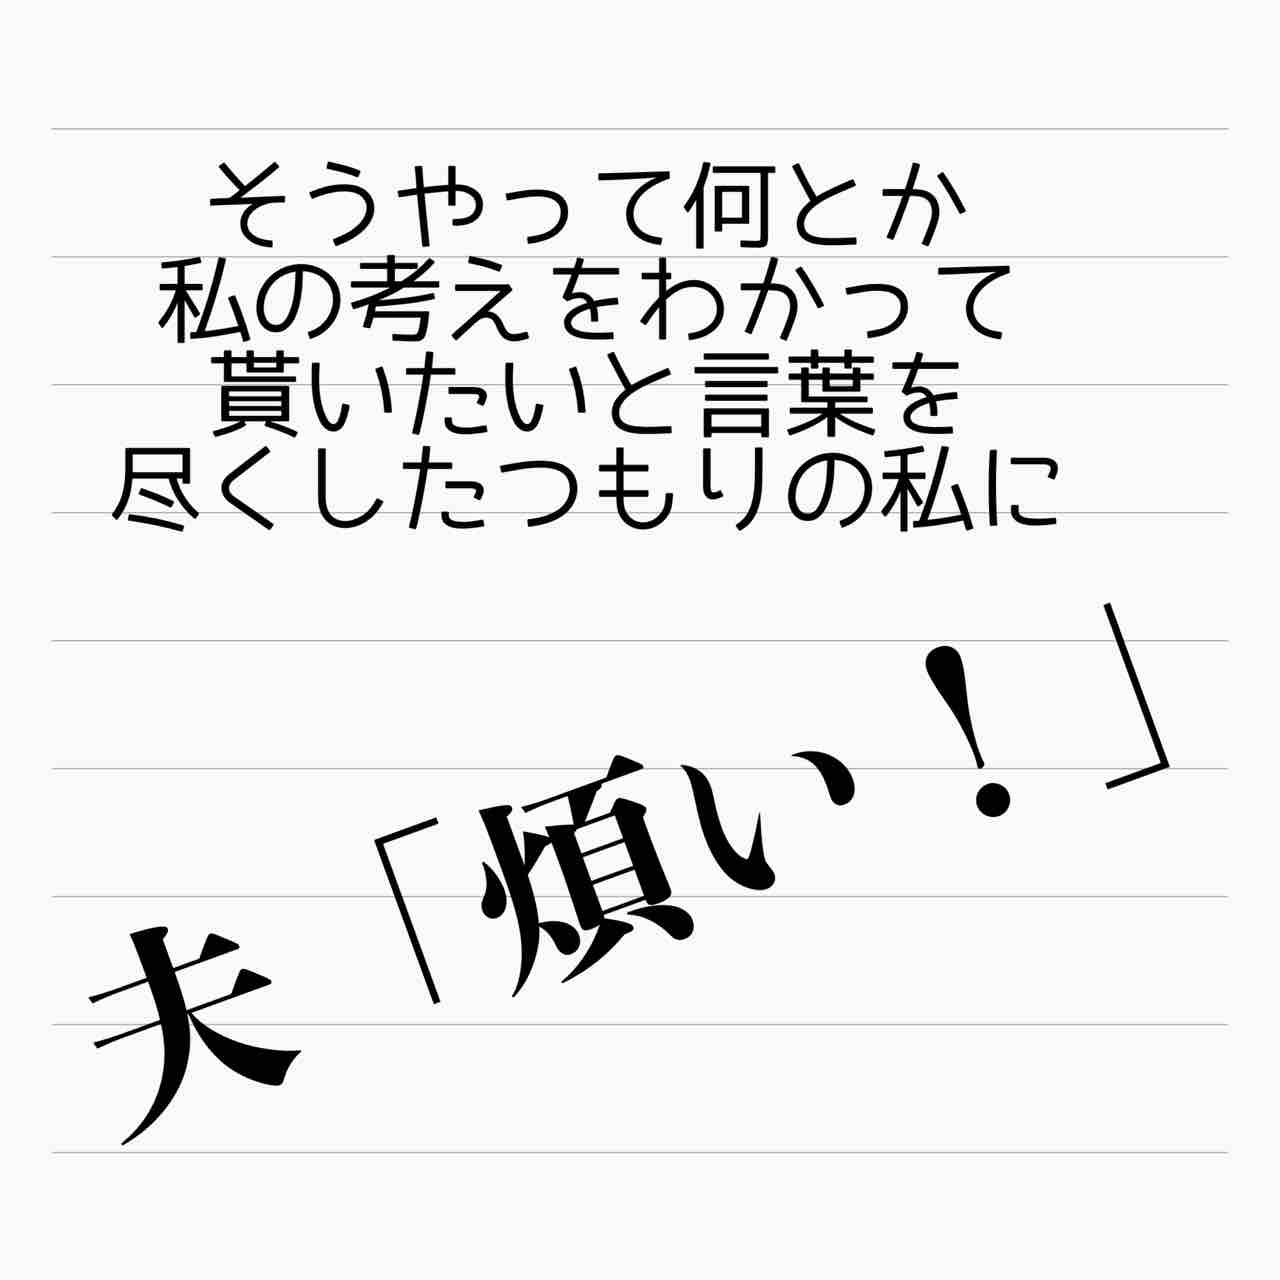 そうやって何とか
私の考えをわかって
貰いたいと言葉を
尽くしたつもりの私に
夫「煩い！」